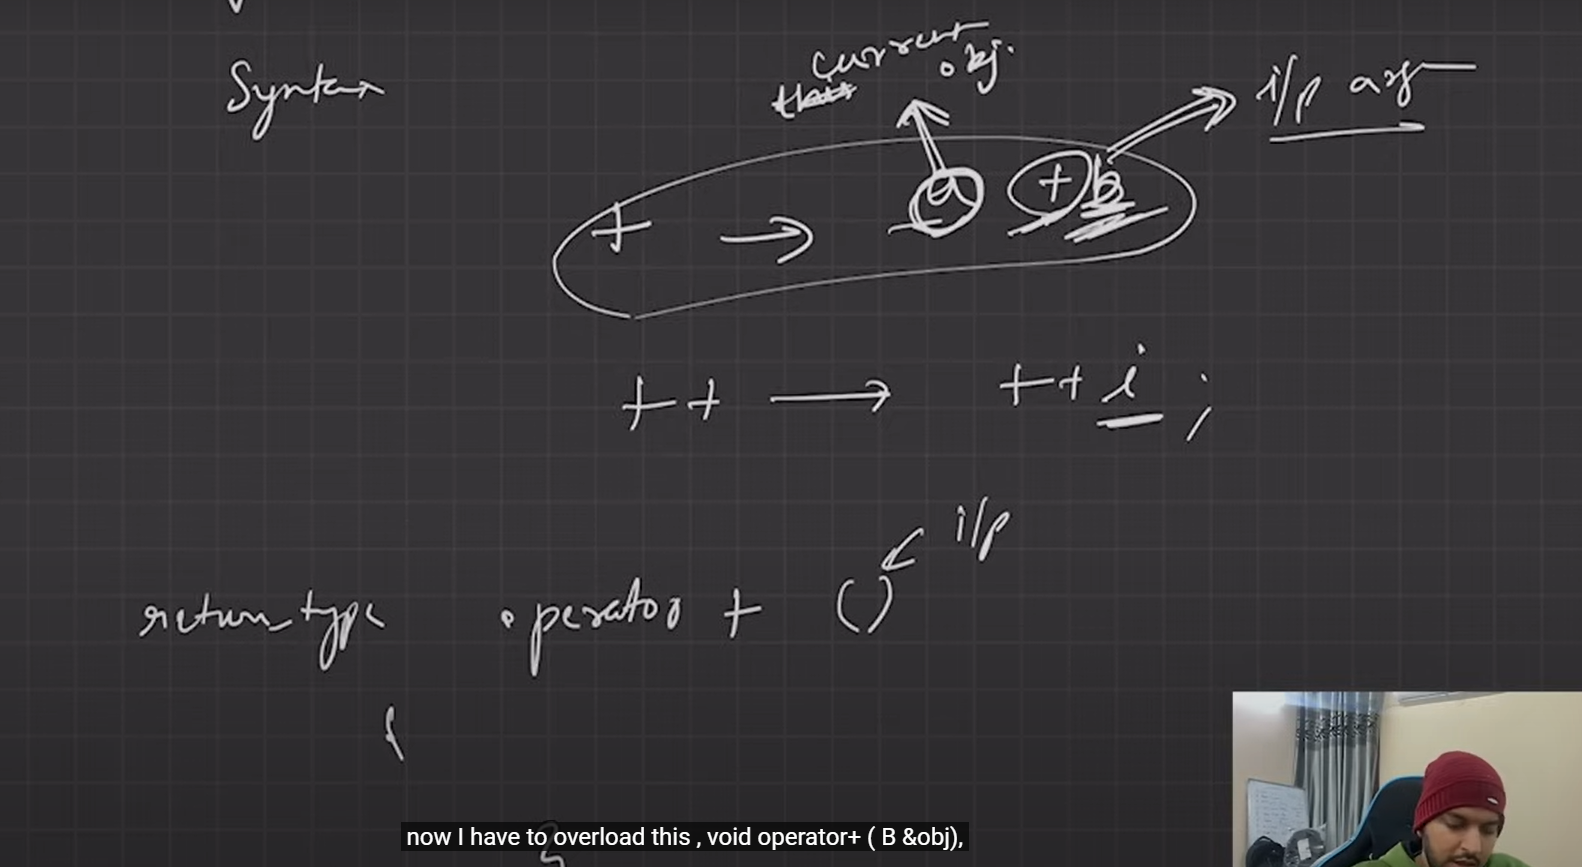 Syntax
current
obj.
i/p arg
+ → a + b
++ → ++i ;
i/p
return_type operator + ()
{
}
now I have to overload this , void operator+ ( B &obj),